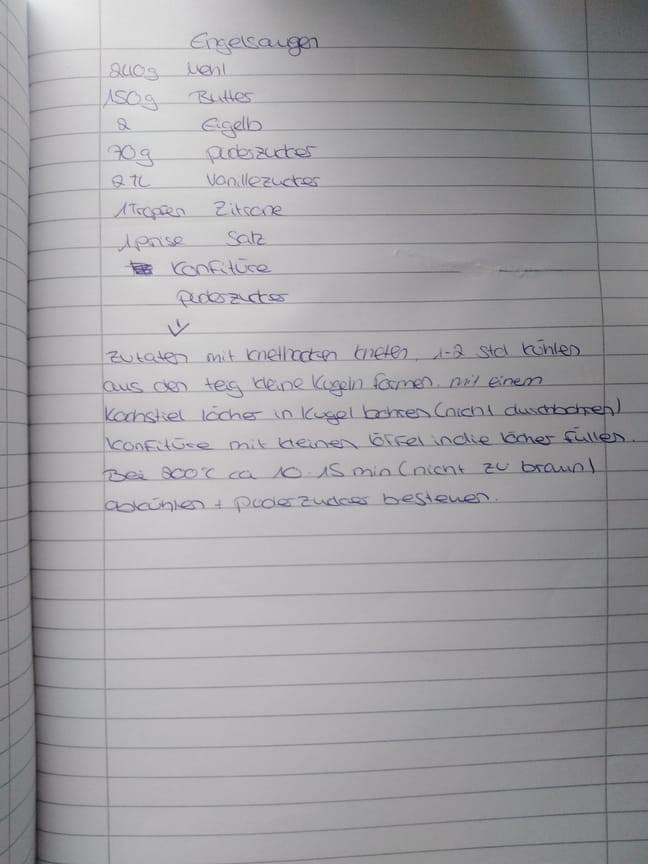 Engelsaugen
240g Mehl
150g Butter
2 Eigelb
70g puderzucker
2 TL Vanillezucker
1 Tropfen Zitrone
1 prise Salz
Konfitüre
puderzucker
Zutaten mit knethacken kneten, 1-2 Std kühlen
aus den teig kleine Kugeln formen. mit einem
Kochstiel löcher in Kugel bohren (nicht durchbohren)
Konfitüre mit kleinen löffel in die löcher füllen.
Bei 200°C ca 10-15 min (nicht zu braun)
abkühlen + puderzucker besteuen.